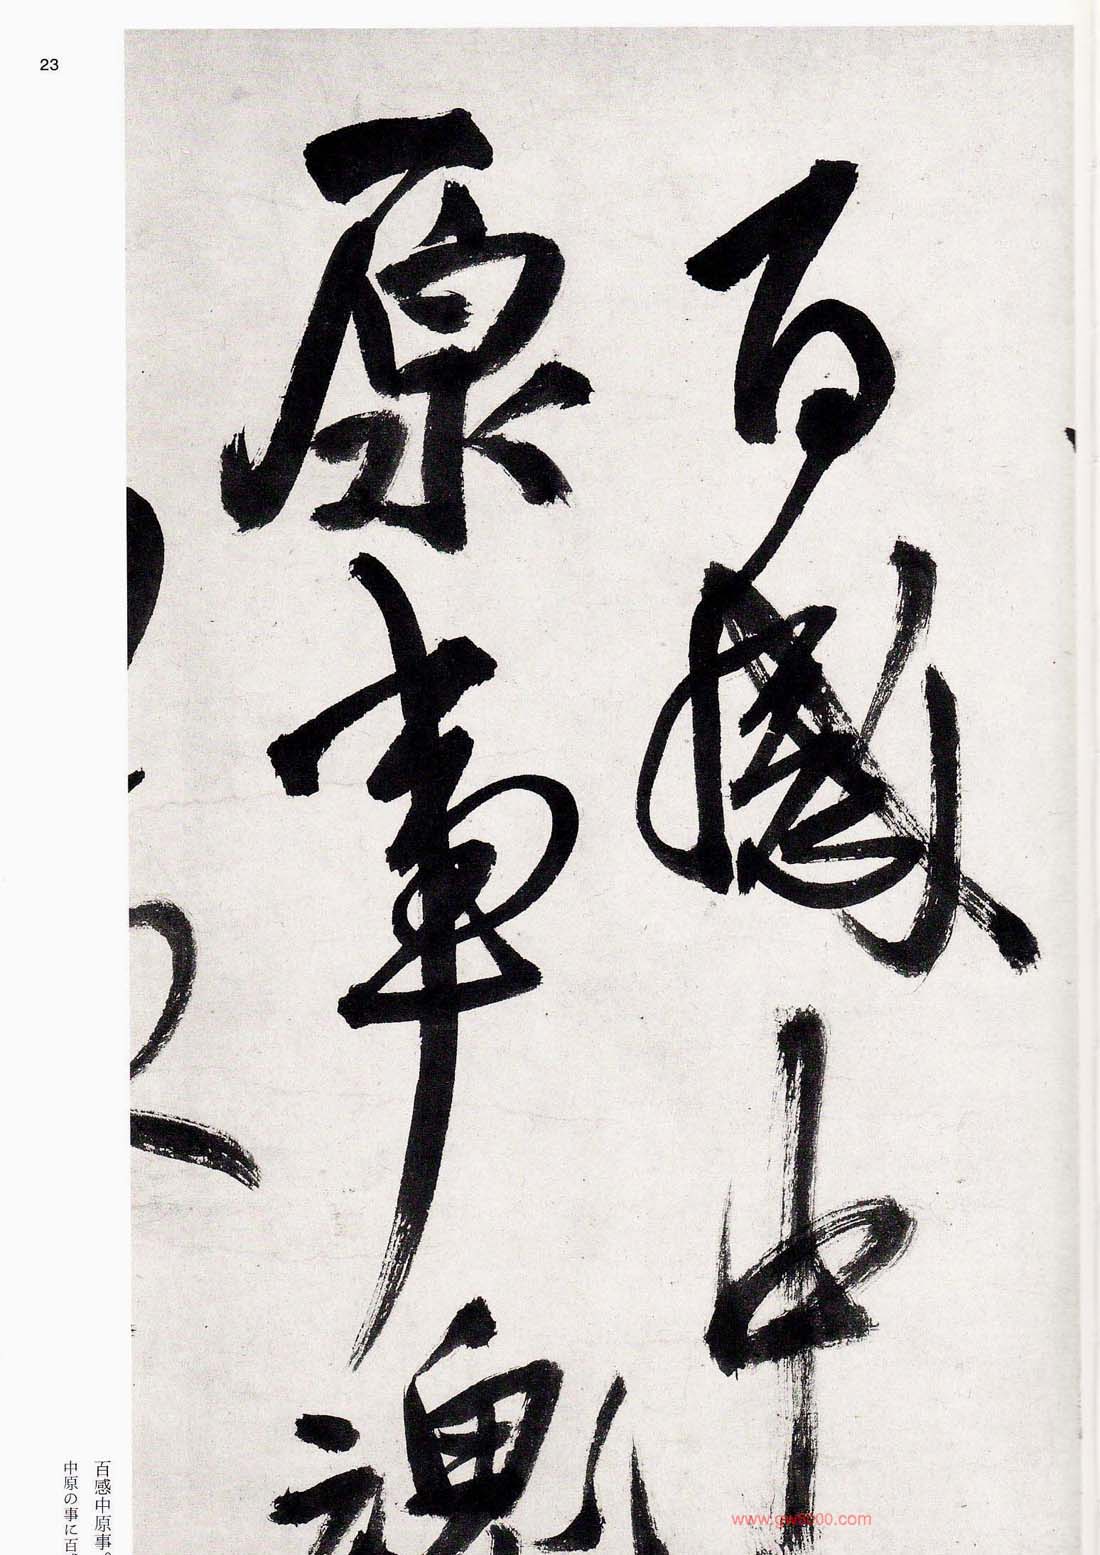 23
百感中
原事魂
百感中原事。
中原の事に百
www.gw8000.com